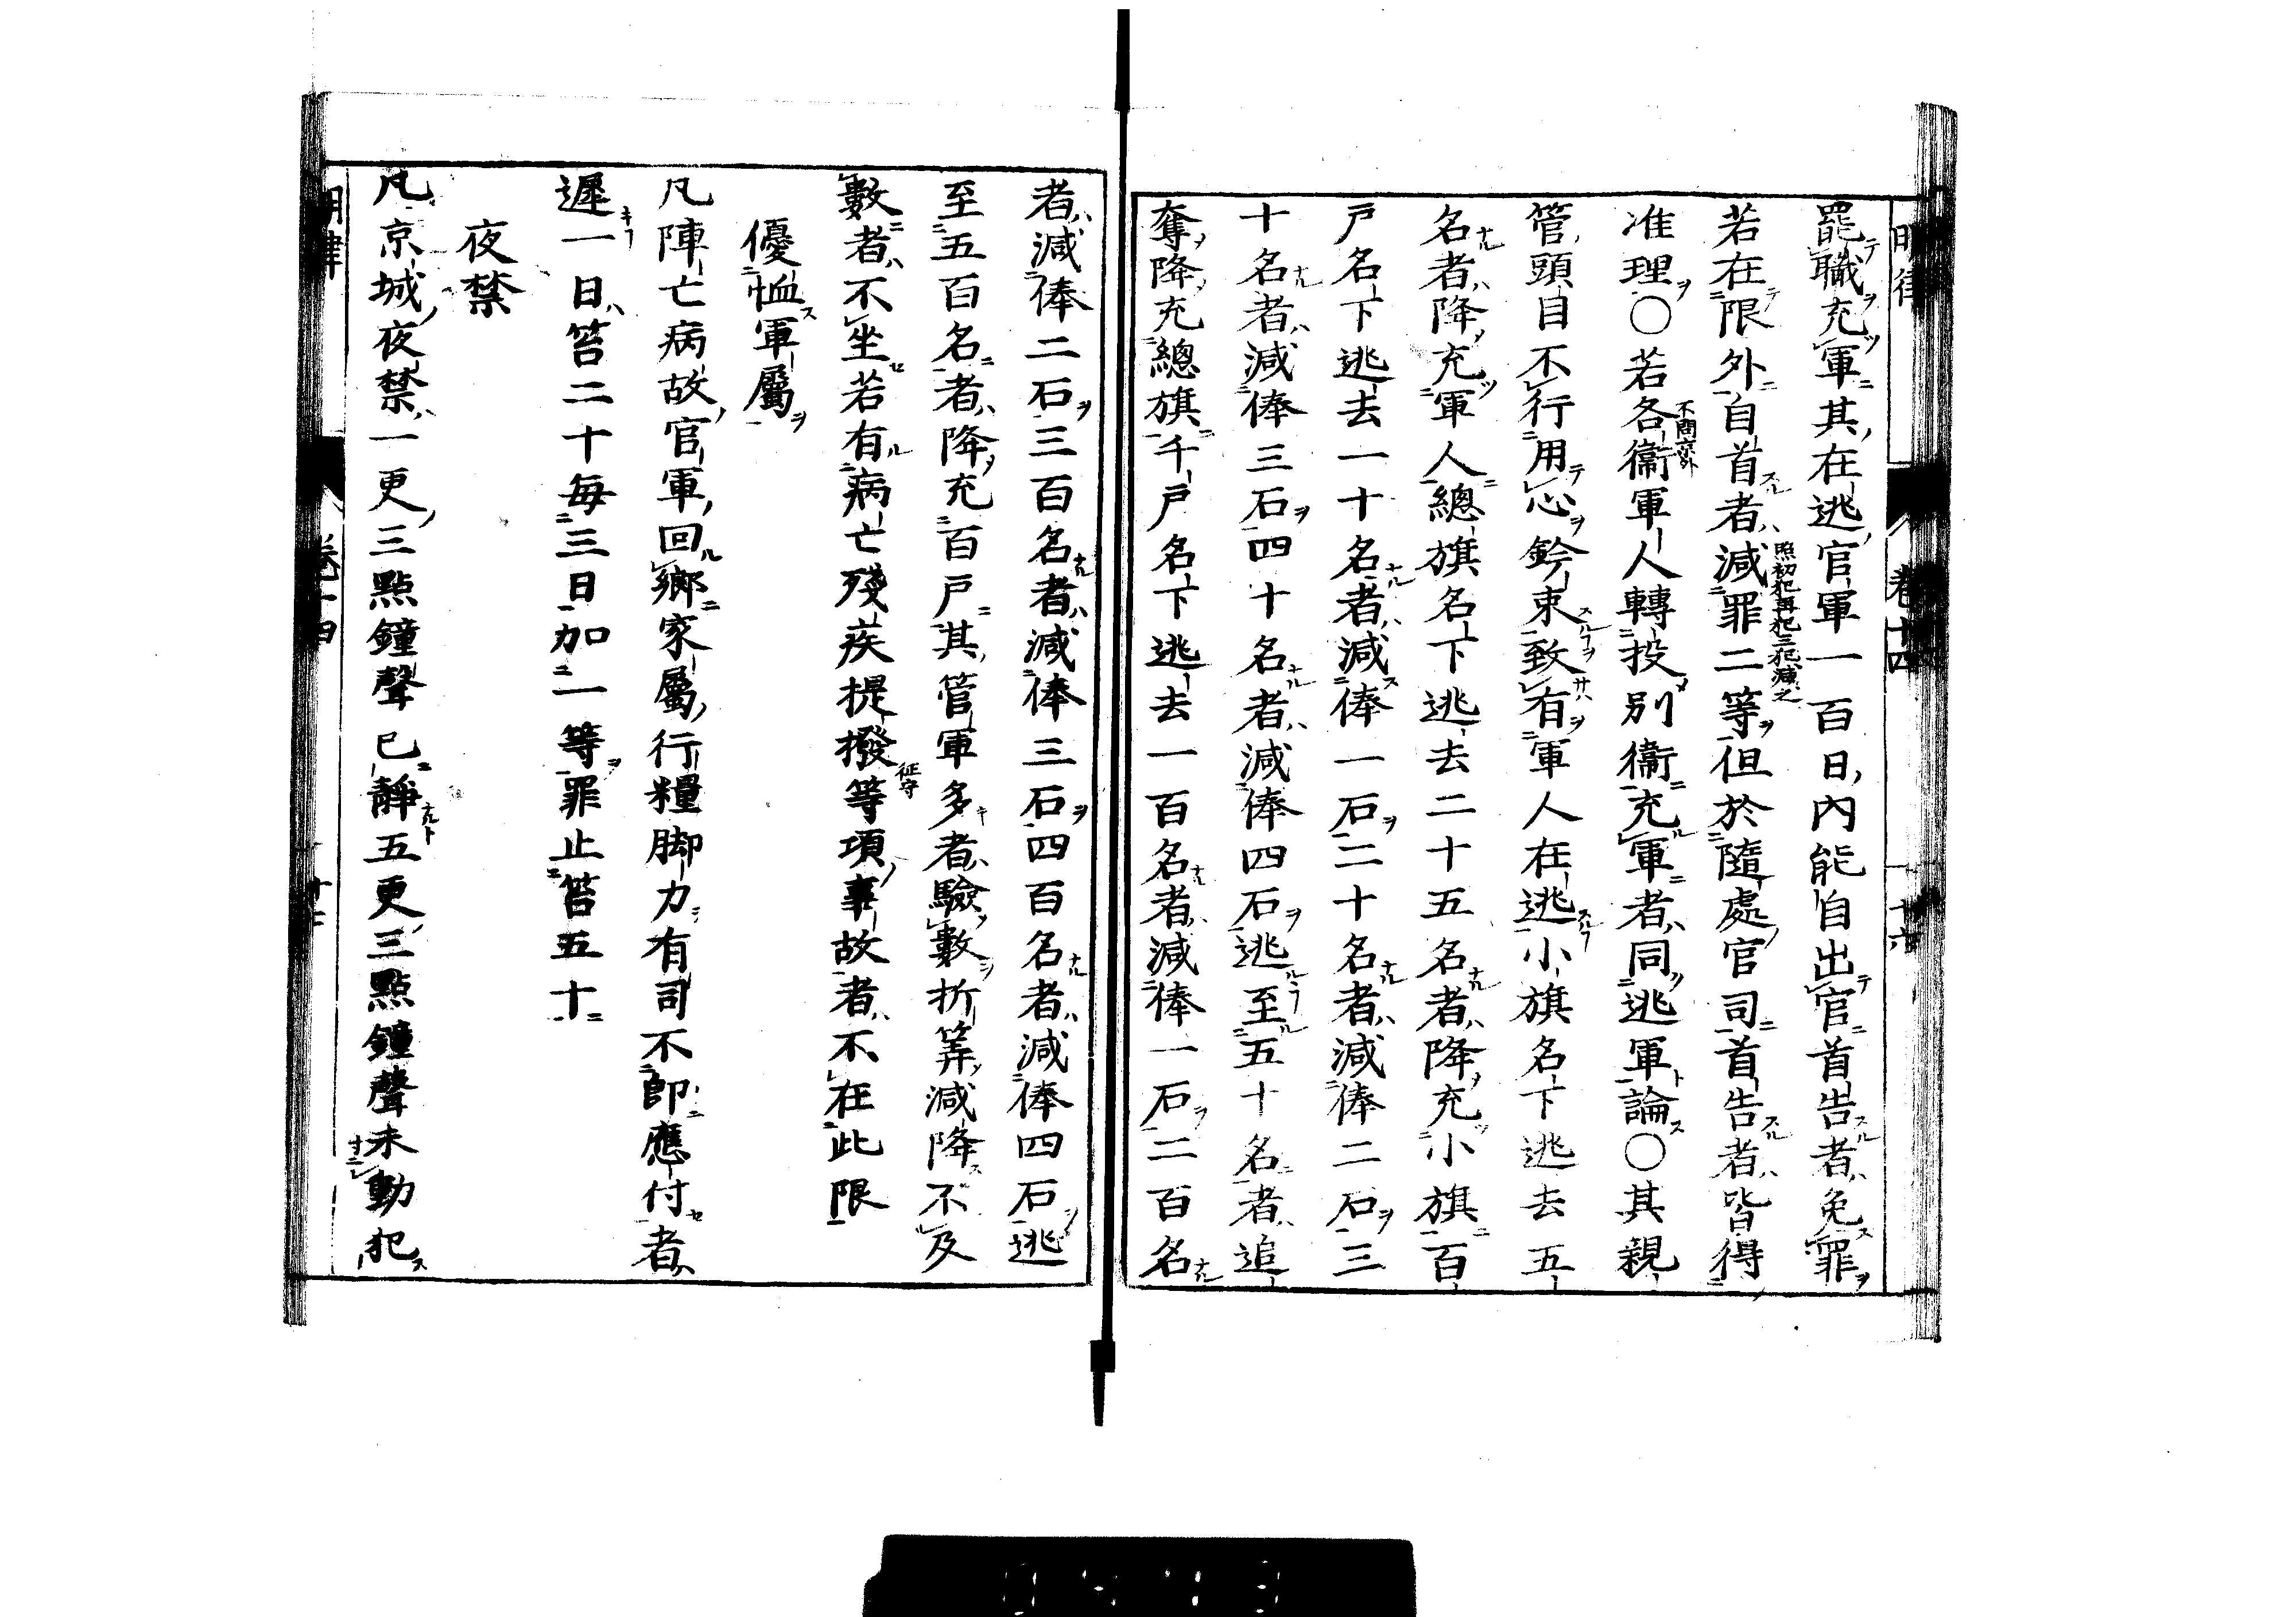 明律
卷十四
十六
罷職充軍其在逃官軍一百日內能自出官首告者免罪
若在限外自首者減罪二等但於隨處官司首告者皆得
照初犯再犯三犯減之
准理〇若各衞軍人轉投別衞充軍者同逃軍論〇其親
管頭目不行用心鈐束致有軍人在逃小旗名下逃去五
名者降充軍人總旗名下逃去二十五名者降充小旗百
戶名下逃去一十名者減俸一石二十名者減俸二石三
十名者減俸三石四十名者減俸四石逃至五十名者追
奪降充總旗千戶名下逃去一百名者減俸一石二百名
者減俸二石三百名者減俸三石四百名者減俸四石逃
至五百名者降充百戶其管軍多者驗數折筭減降不及
數者不坐若有病亡殘疾提撥等項事故者不在此限
征守
優恤軍屬
凡陣亡病故官軍回鄉家屬行糧脚力有司不卽應付者
遲一日笞二十每三日加一等罪止笞五十
夜禁
凡京城夜禁一更三點鐘聲已靜五更三點鐘聲未動犯
明律
卷十四